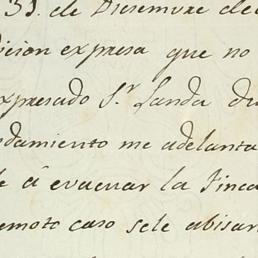 31. de Diciembre de
dicion expresa que no
expresado S.r Landa du
ndamiento me adelanta
e á evacuar la Finca
emoto caso sele abisar